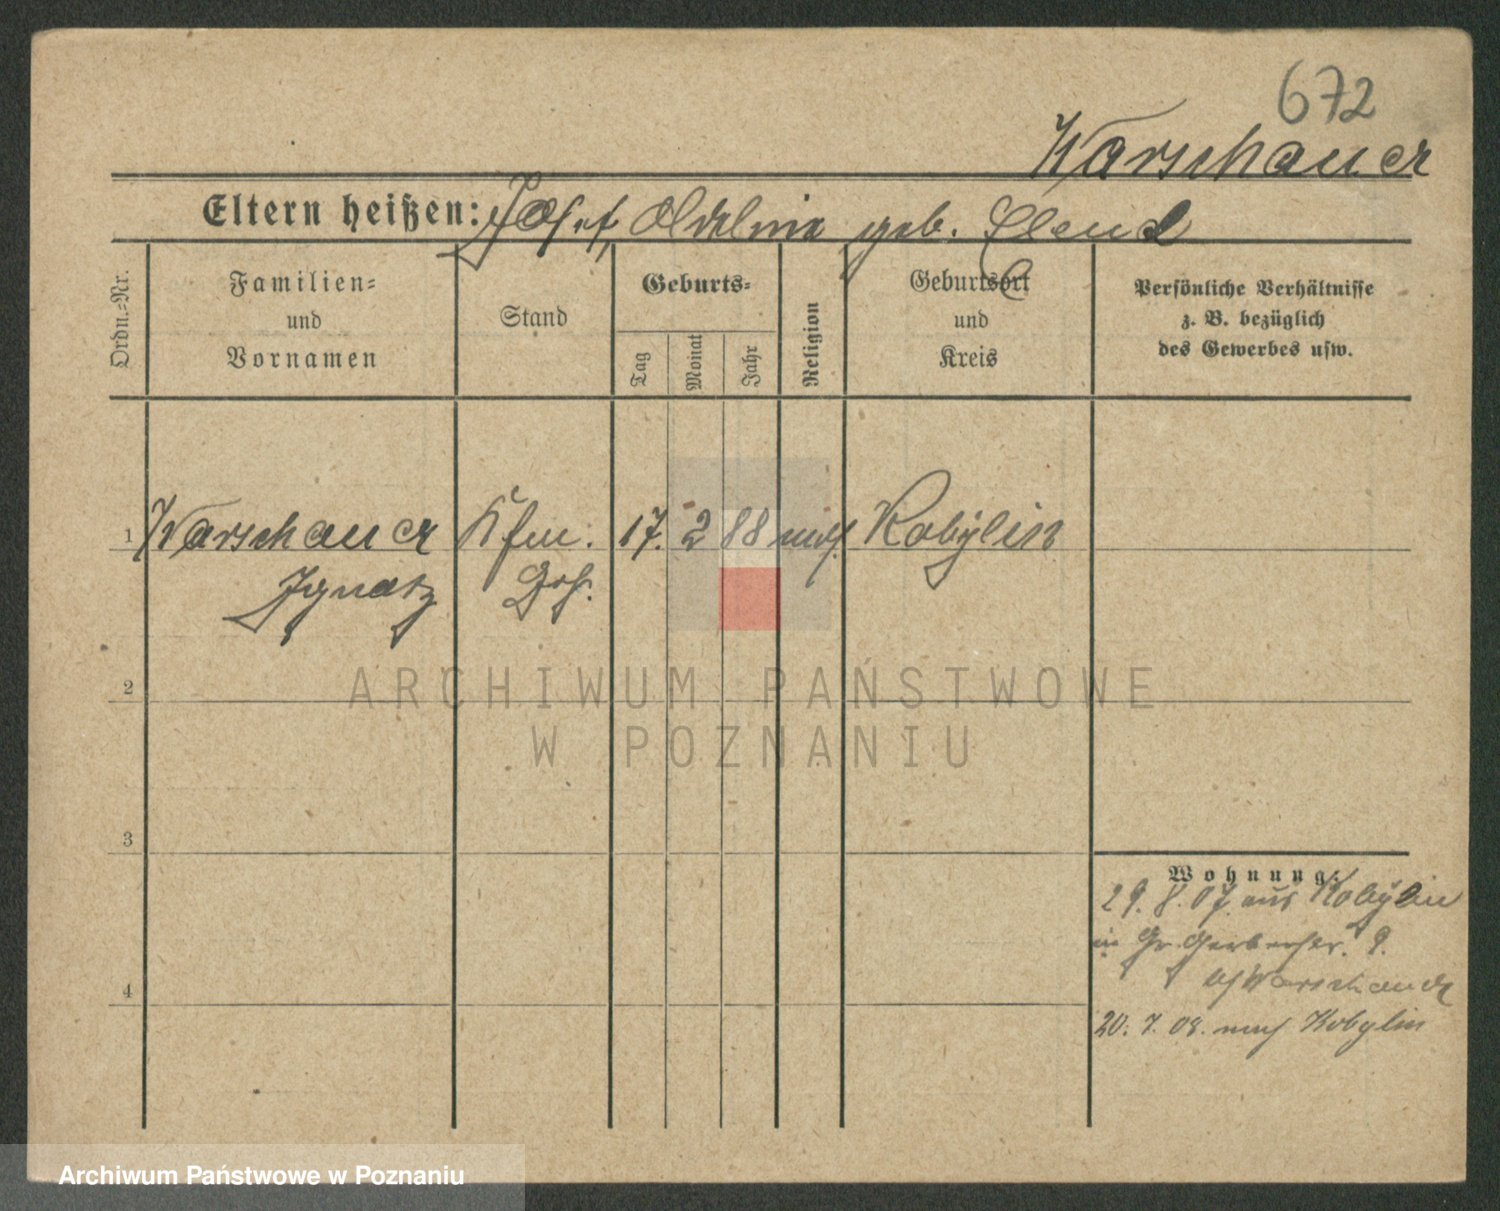 672
Warschauer
Eltern heißen: Josef Adelina geb. Elend
Ordn.-Nr.
Familien-
und
Vornamen
Stand
Geburts-
Tag
Monat
Jahr
Religion
Geburtsort
und
Kreis
Persönliche Verhältnisse
z. B. bezüglich
des Gewerbes usw.
1 Warschauer Kfm. 17. 2 88 mos. Kobylin
Ignatz Geh.
ARCHIWUM PAŃSTWOWE
2
W POZNANIU
3
Wohnung:
29. 8. 07. aus Kobylin
in Gr. Gerberstr. 9.
b/Warschauer
4
20. 7. 08. nach Kobylin
Archiwum Państwowe w Poznaniu